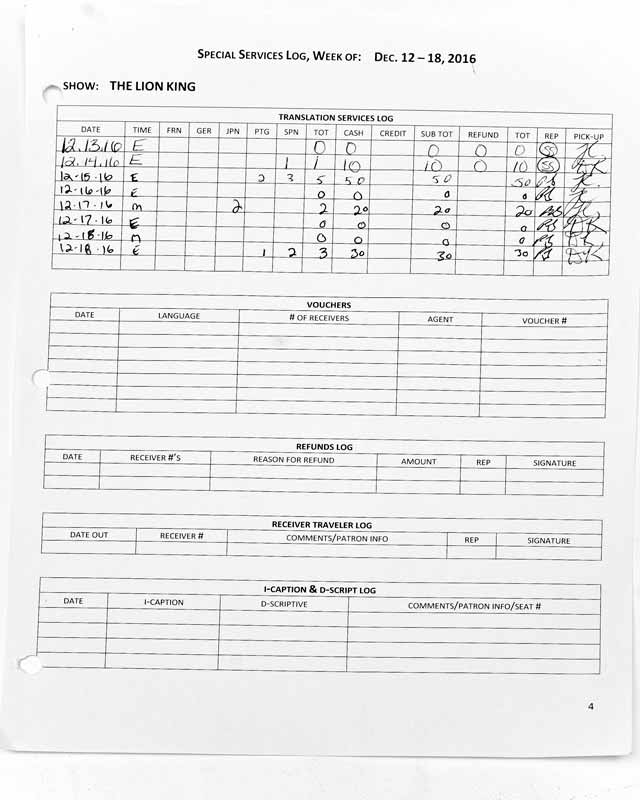 SPECIAL SERVICES LOG, WEEK OF: DEC. 12 – 18, 2016
SHOW: THE LION KING
TRANSLATION SERVICES LOG
DATE TIME FRN GER JPN PTG SPN TOT CASH CREDIT SUB TOT REFUND TOT REP PICK-UP
12.13.16 E 0 0 0 0 0 SS
12.14.16 E 1 1 10 10 0 10 SS
12-15-16 E 2 3 5 50 50 50
12-16-16 E 0 0 0 0
12-17-16 m 2 2 20 20 20
12-17-16 E 0 0 0 0
12-18-16 m 0 0 0 0
12-18-16 E 1 2 3 30 30 30
VOUCHERS
DATE LANGUAGE # OF RECEIVERS AGENT VOUCHER #
REFUNDS LOG
DATE RECEIVER #'S REASON FOR REFUND AMOUNT REP SIGNATURE
RECEIVER TRAVELER LOG
DATE OUT RECEIVER # COMMENTS/PATRON INFO REP SIGNATURE
I-CAPTION & D-SCRIPT LOG
DATE I-CAPTION D-SCRIPTIVE COMMENTS/PATRON INFO/SEAT #
4